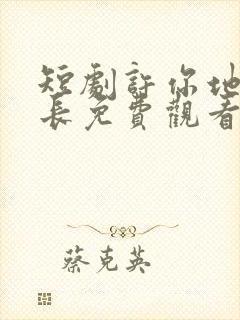 短劇許你地
長免費觀看
蔡克英